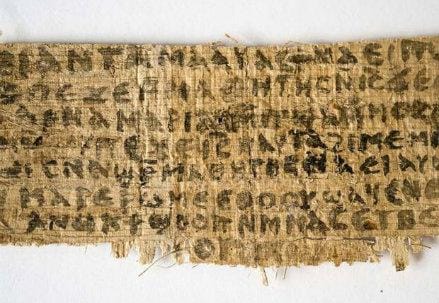 ⲉⲓ ⲁⲛ ⲧⲁⲙⲁⲁⲩ ⲁⲥϯ ⲛⲁⲉⲓ ⲡ
ⲡⲉϫⲉ ⲙⲙⲁⲑⲏⲧⲏⲥ ⲛⲓⲥ ϫⲉ ⲥ
ⲁⲣⲛⲁ ⲙⲁⲣⲓⲁⲙ ⲙⲡϣⲁ ⲙⲙⲟⲥ
ⲡⲉϫⲉ ⲓⲥ ⲛⲁⲩ ⲧⲁϩⲓⲙⲉ ⲙⲛ
ⲥⲛⲁϣⲣⲙⲁⲑⲏⲧⲏⲥ ⲛⲁⲉⲓ ⲁⲩⲱ
ⲙⲁⲣⲉⲣⲱⲙⲉ ⲉⲑⲟⲟⲩ ϣⲁϥⲉⲛⲉ
ⲁⲛⲟⲕ ϯϣⲟⲟⲡ ⲛⲙⲙⲁⲥ ⲉⲧⲃⲉ